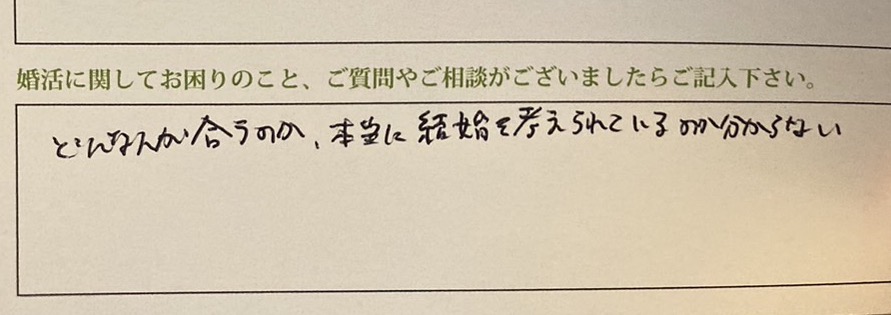 婚活に関してお困りのこと、ご質問やご相談がございましたらご記入下さい。
どんな人が合うのか、本当に結婚を考えられているのか分からない